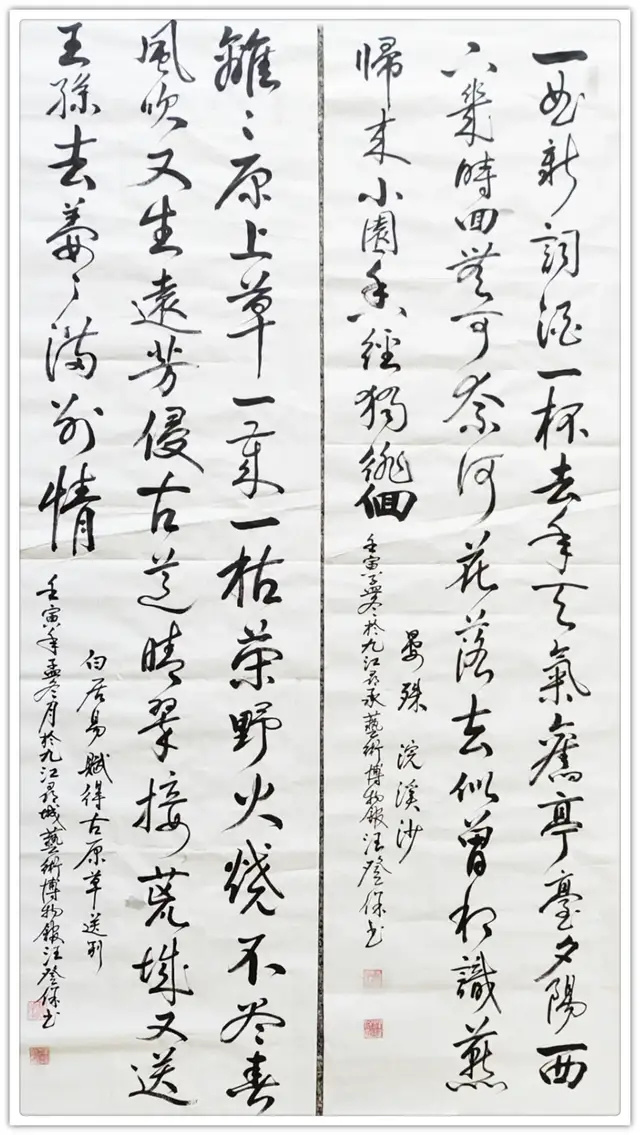 一曲新詞酒一杯去年天氣舊亭臺夕陽西
下幾時回無可奈何花落去似曾相識燕
帰来小園香經獨徘徊
晏殊 浣溪沙
壬寅孟冬於九江藝術博物館汪登保书
離〻原上草一歲一枯荣野火燒不尽春
風吹又生遠芳侵古道晴翠接荒城又送
王孫去萋〻滿别情
白居易賦得古原草送别
壬寅年孟冬月於九江藝術博物館汪登保书